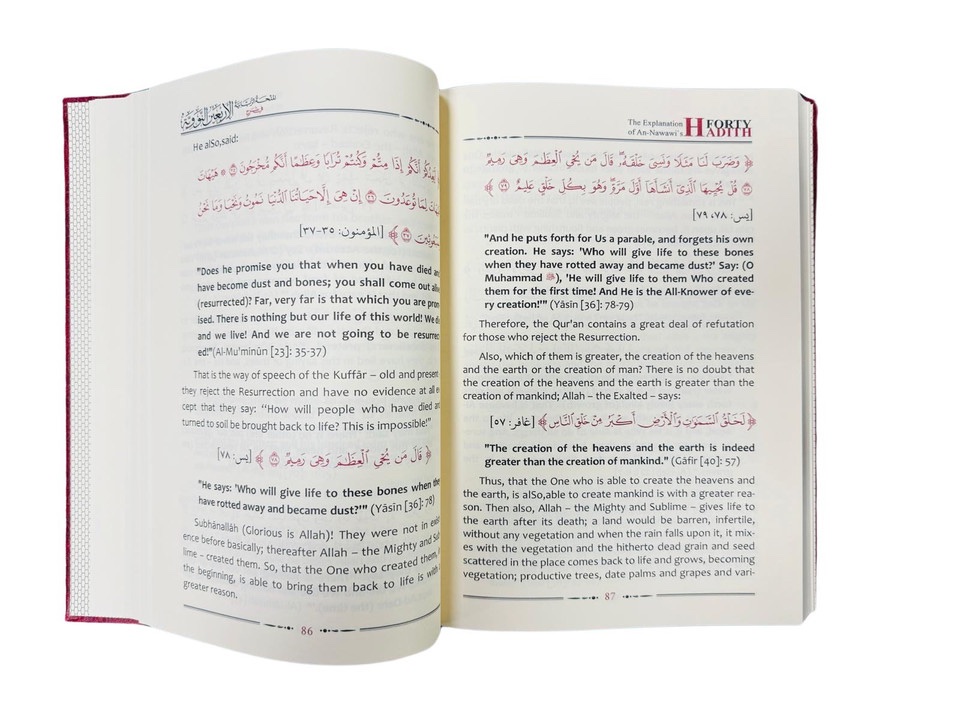 المنحة الربانية في شرح الأربعين النووية
He alSo,said:
أَيَعِدُكُمْ أَنَّكُمْ إِذَا مِتُّمْ وَكُنتُمْ تُرَابًا وَعِظَٰمًا أَنَّكُم مُّخْرَجُونَ ۝٣٥ ۞ هَيْهَاتَ
هَيْهَاتَ لِمَا تُوعَدُونَ ۝٣٦ إِنْ هِىَ إِلَّا حَيَاتُنَا ٱلدُّنْيَا نَمُوتُ وَنَحْيَا وَمَا نَحْنُ
بِمَبْعُوثِينَ ۝٣٧﴾ [المؤمنون: ٣٥-٣٧]
"Does he promise you that when you have died and
have become dust and bones; you shall come out alive
(resurrected)? Far, very far is that which you are prom-
ised. There is nothing but our life of this world! We die
and we live! And we are not going to be resurrect-
ed!"(Al-Mu'minûn [23]: 35-37)
That is the way of speech of the Kuffâr – old and present–
they reject the Resurrection and have no evidence at all ex-
cept that they say: "How will people who have died and
turned to soil be brought back to life? This is impossible!"
﴿ قَالَ مَن يُحْىِ ٱلْعِظَٰمَ وَهِىَ رَمِيمٌ ۝٧٨ ﴾ [يس: ٧٨]
"He says: 'Who will give life to these bones when they
have rotted away and became dust?'" (Yâsin [36]: 78)
Subhânallâh (Glorious is Allah)! They were not in exist-
ence before basically; thereafter Allah – the Mighty and Sub-
lime – created them. So, that the One who created them, in
the beginning, is able to bring them back to life is with a
greater reason.
86
The Explanation
of An-Nawawi's
FORTY
HADITH
﴿ وَضَرَبَ لَنَا مَثَلًا وَنَسِىَ خَلْقَهُۥ قَالَ مَن يُحْىِ ٱلْعِظَٰمَ وَهِىَ رَمِيمٌ
۝٧٨ قُلْ يُحْيِيهَا ٱلَّذِىٓ أَنشَأَهَآ أَوَّلَ مَرَّةٍ وَهُوَ بِكُلِّ خَلْقٍ عَلِيمٌ ۝٧٩ ﴾
[يس: ٧٨، ٧٩]
"And he puts forth for Us a parable, and forgets his own
creation. He says: 'Who will give life to these bones
when they have rotted away and became dust?' Say: (O
Muhammad ﷺ), 'He will give life to them Who created
them for the first time! And He is the All-Knower of eve-
ry creation!'" (Yâsin [36]: 78-79)
Therefore, the Qur'an contains a great deal of refutation
for those who reject the Resurrection.
Also, which of them is greater, the creation of the heavens
and the earth or the creation of man? There is no doubt that
the creation of the heavens and the earth is greater than the
creation of mankind; Allah – the Exalted – says:
﴿ لَخَلْقُ ٱلسَّمَٰوَٰتِ وَٱلْأَرْضِ أَكْبَرُ مِنْ خَلْقِ ٱلنَّاسِ ﴾ [غافر: ٥٧]
"The creation of the heavens and the earth is indeed
greater than the creation of mankind." (Gâfir [40]: 57)
Thus, that the One who is able to create the heavens and
the earth, is alSo,able to create mankind is with a greater rea-
son. Then also, Allah – the Mighty and Sublime – gives life to
the earth after its death; a land would be barren, infertile,
without any vegetation and when the rain falls upon it, it mix-
es with the vegetation and the hitherto dead grain and seed
scattered in the place comes back to life and grows, becoming
vegetation; productive trees, date palms and grapes and vari-
87